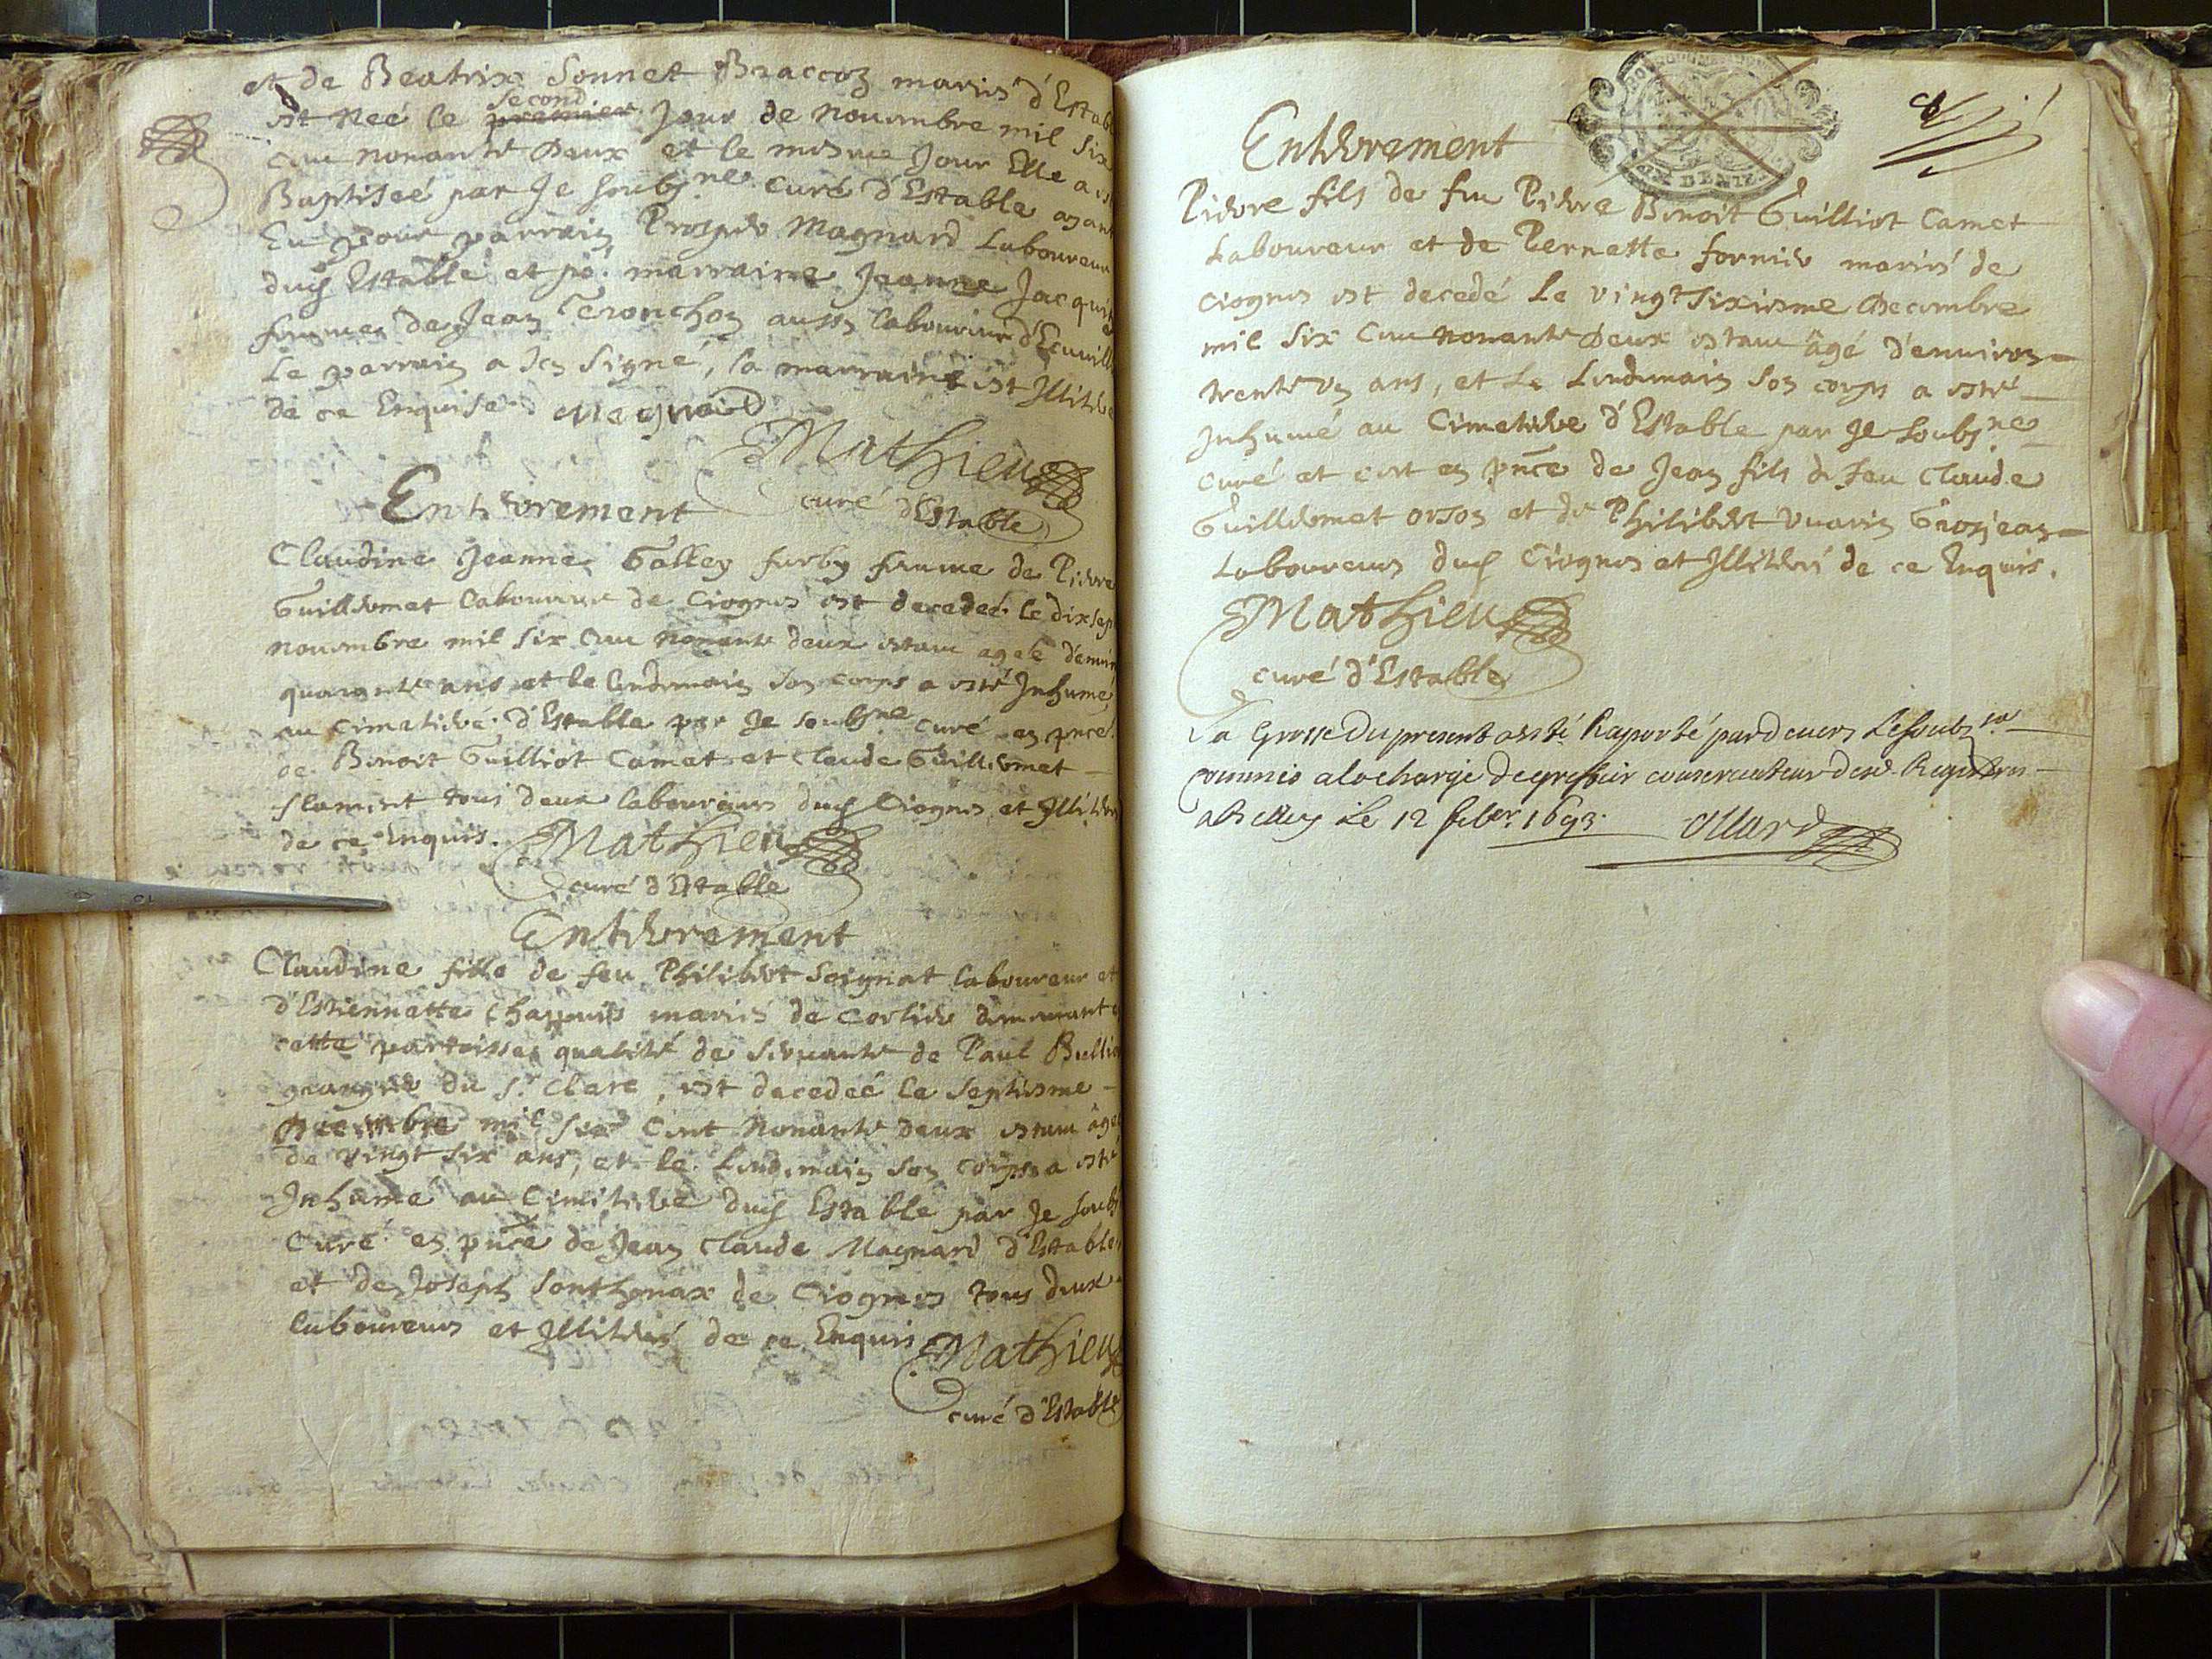 et de Beatrix Sonnet Braccoz mariés d'Estab
est Neé le second premier Jour de Nouembre mil Six
cens nonante Deux et le mesme Jour Elle a es
Baptiseé par Je soubsne curé d'Estable ayant
Eu pour parrain Prosper Magnard Laboureur
dud Estable et po. marraine Jeanne Jacqui
femme de Jean Teronchoz aussy laboureur
Le parrain a Icy Signé, la marraine est Illitere
de ce Enquise. Magnard
Mathieu
curé d'Estable
Enterement
Claudine Jeanne Galley furby femme de Pierre
Guillermet laboureur de Ciognes est decedeé le dix sep
nouembre mil six cens nonante deux estant ageé d'enuir
quarante ans et le lendemain son corps a esté Inhumé
au Cimetiere d'Estable par Je soubsne curé en pnce
de Benoit Guilliot Camet et Claude Guillermet
flamint tous deux laboureurs dud Ciognes et Illiter
de ce Enquis. Mathieu
curé d'Estable
Enterrement
Claudine fille de feu Philibert Soignat laboureur et
d'Estiennette Chappuis mariés de Corlier demeurant
cette parroisse qualité de seruante de Paul Bullio
granger du Sr. Clerc, est decedeé le Septiesme
Decembre mil six Cent Nonante deux estant âgé
de vingt six ans, et le Lendemain son corps a esté
Inhumé au Cimetiere dud Estable par Je soubs
Curé en pnce de Jean Claude Magnard d'Estable
et de Joseph Sonthonax de Ciognes tous deux
laboureurs et Illiterés de ce Enquis Mathieu
curé d'Estable
Enterrement
Pierre fils de feu Pierre Benoit Guilliot Camet
Laboureur et de Pernette fornier mariés de
Ciognes est decedé Le vingt Sixiesme Decembre
mil Six Cens nonante Deux estant âgé d'enuiron
trente un ans, et Le Lendemain son corps a esté
Inhumé au Cimetiere d'Estable par Je Soubsne
curé et cert en pnce de Jean fils de feu Claude
Guillermet orson et de Philibert Vuarin Grosjean
Laboureurs dud Ciognes et Illiterés de ce Enquis.
Mathieu
curé d'Estable
La Grosse Du present a esté Raporté pardeuers Le soubs
commis a la charge de greffier conseruateur des Registres
a Belley Le 12 feber. 1693. Ollard